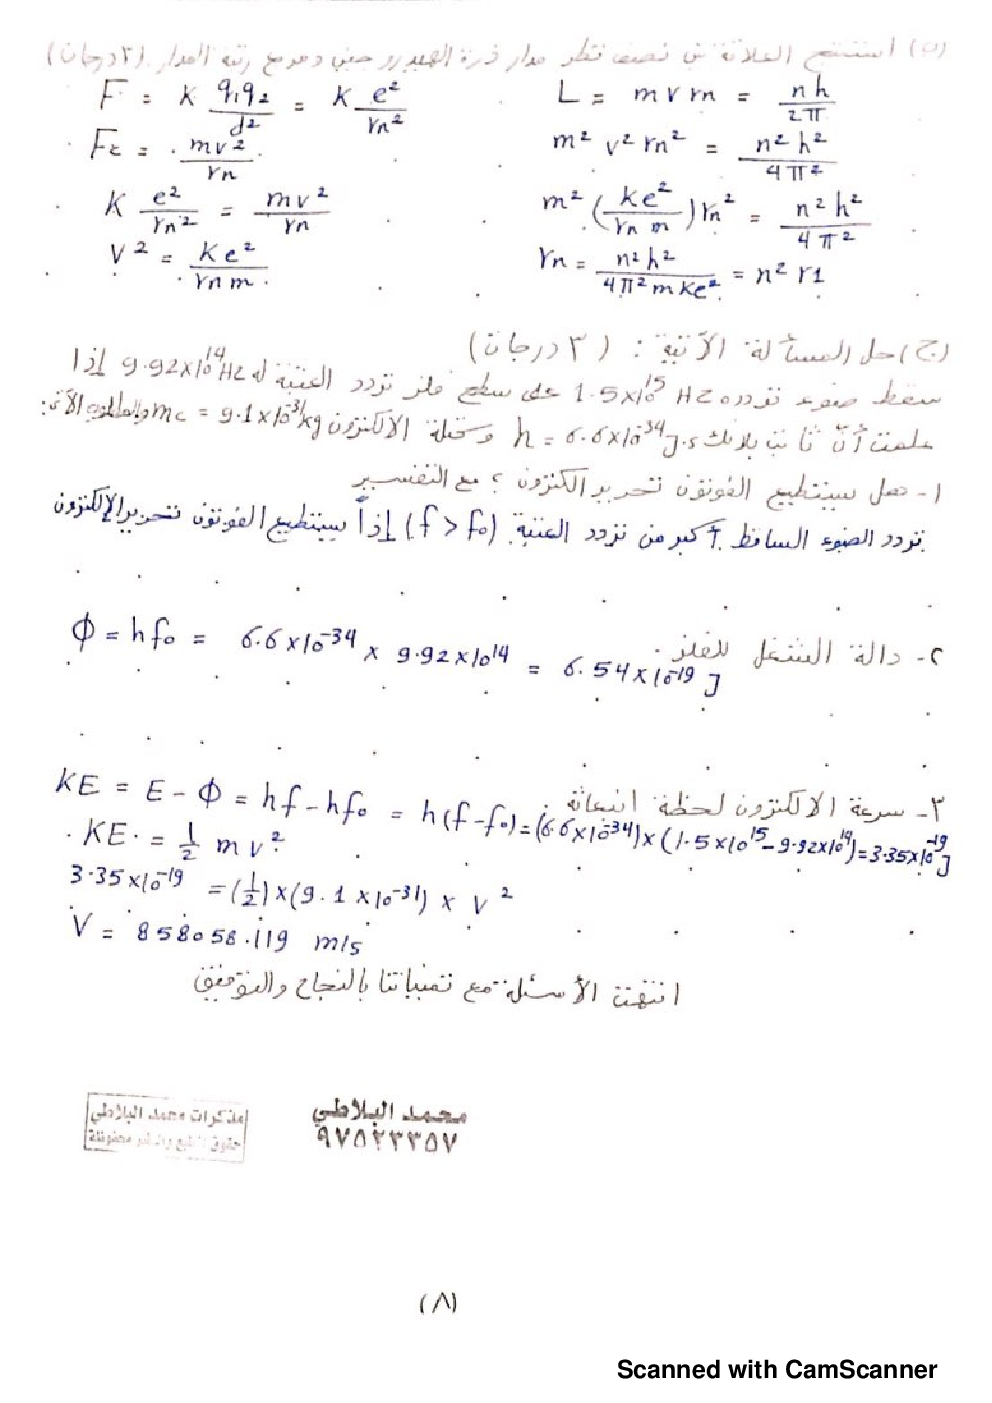 (ب) استنتج العلاقة بين نصف نظر مدار ذرة الهيدروجين ومربع رتبة المدار. (٣ درجات)
F = K q1q2/d² = K e²/rn²
L = mvrn = nh/2π
Fc = mv²/rn
m² v² rn² = n²h²/4π²
K e²/rn² = mv²/rn
m² (ke²/rn m) rn² = n²h²/4π²
V² = Ke²/rn m
rn = n²h²/4π²mKe² = n² r1
(ج) حل المسألة الآتية : (٣ درجات)
سقط ضوء تردده 1.5x10¹⁵ Hz على سطح فلز تردد العتبة له 9.92x10¹⁴ Hz إذا
علمت أنّ ثابت بلانك h = 6.6x10⁻³⁴ J.s وكتلة الالكترون mc = 9.1x10⁻³¹ kg والمطلوب الآتي:
١- هل يستطيع الفوتون تحرير الكترون ؟ مع التفسير
تردد الضوء الساقط أكبر من تردد العتبة (f > f₀) إذاً يستطيع الفوتون تحرير الإلكترون
٢- دالة الشغل للفلز .
ϕ = hf₀ = 6.6x10⁻³⁴ x 9.92x10¹⁴ = 6.54x10⁻¹⁹ J
٣- سرعة الالكترون لحظة انبعاثه
KE = E - ϕ = hf - hf₀ = h(f-f₀) = (6.6x10⁻³⁴)x(1.5x10¹⁵-9.92x10¹⁴) = 3.35x10⁻¹⁹ J
KE = 1/2 mv²
3.35x10⁻¹⁹ = (1/2)x(9.1x10⁻³¹) x v²
V = 858058.119 m/s
انتهت الأسئلة مع تمنياتنا بالنجاح والتوفيق
محمد البلاطي
٩٧٥٢٣٣٥٧
مذكرات محمد البلاطي
حقوق الطبع والنشر محفوظة
(٨)
Scanned with CamScanner